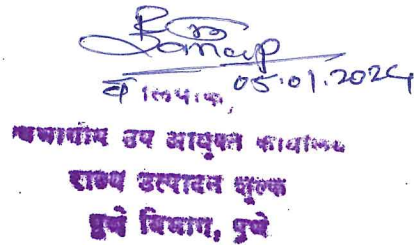 05.01.2024
लिपिक,
विभागीय उप आयुक्त कार्यालय
राज्य उत्पादन शुल्क
पुणे विभाग, पुणे